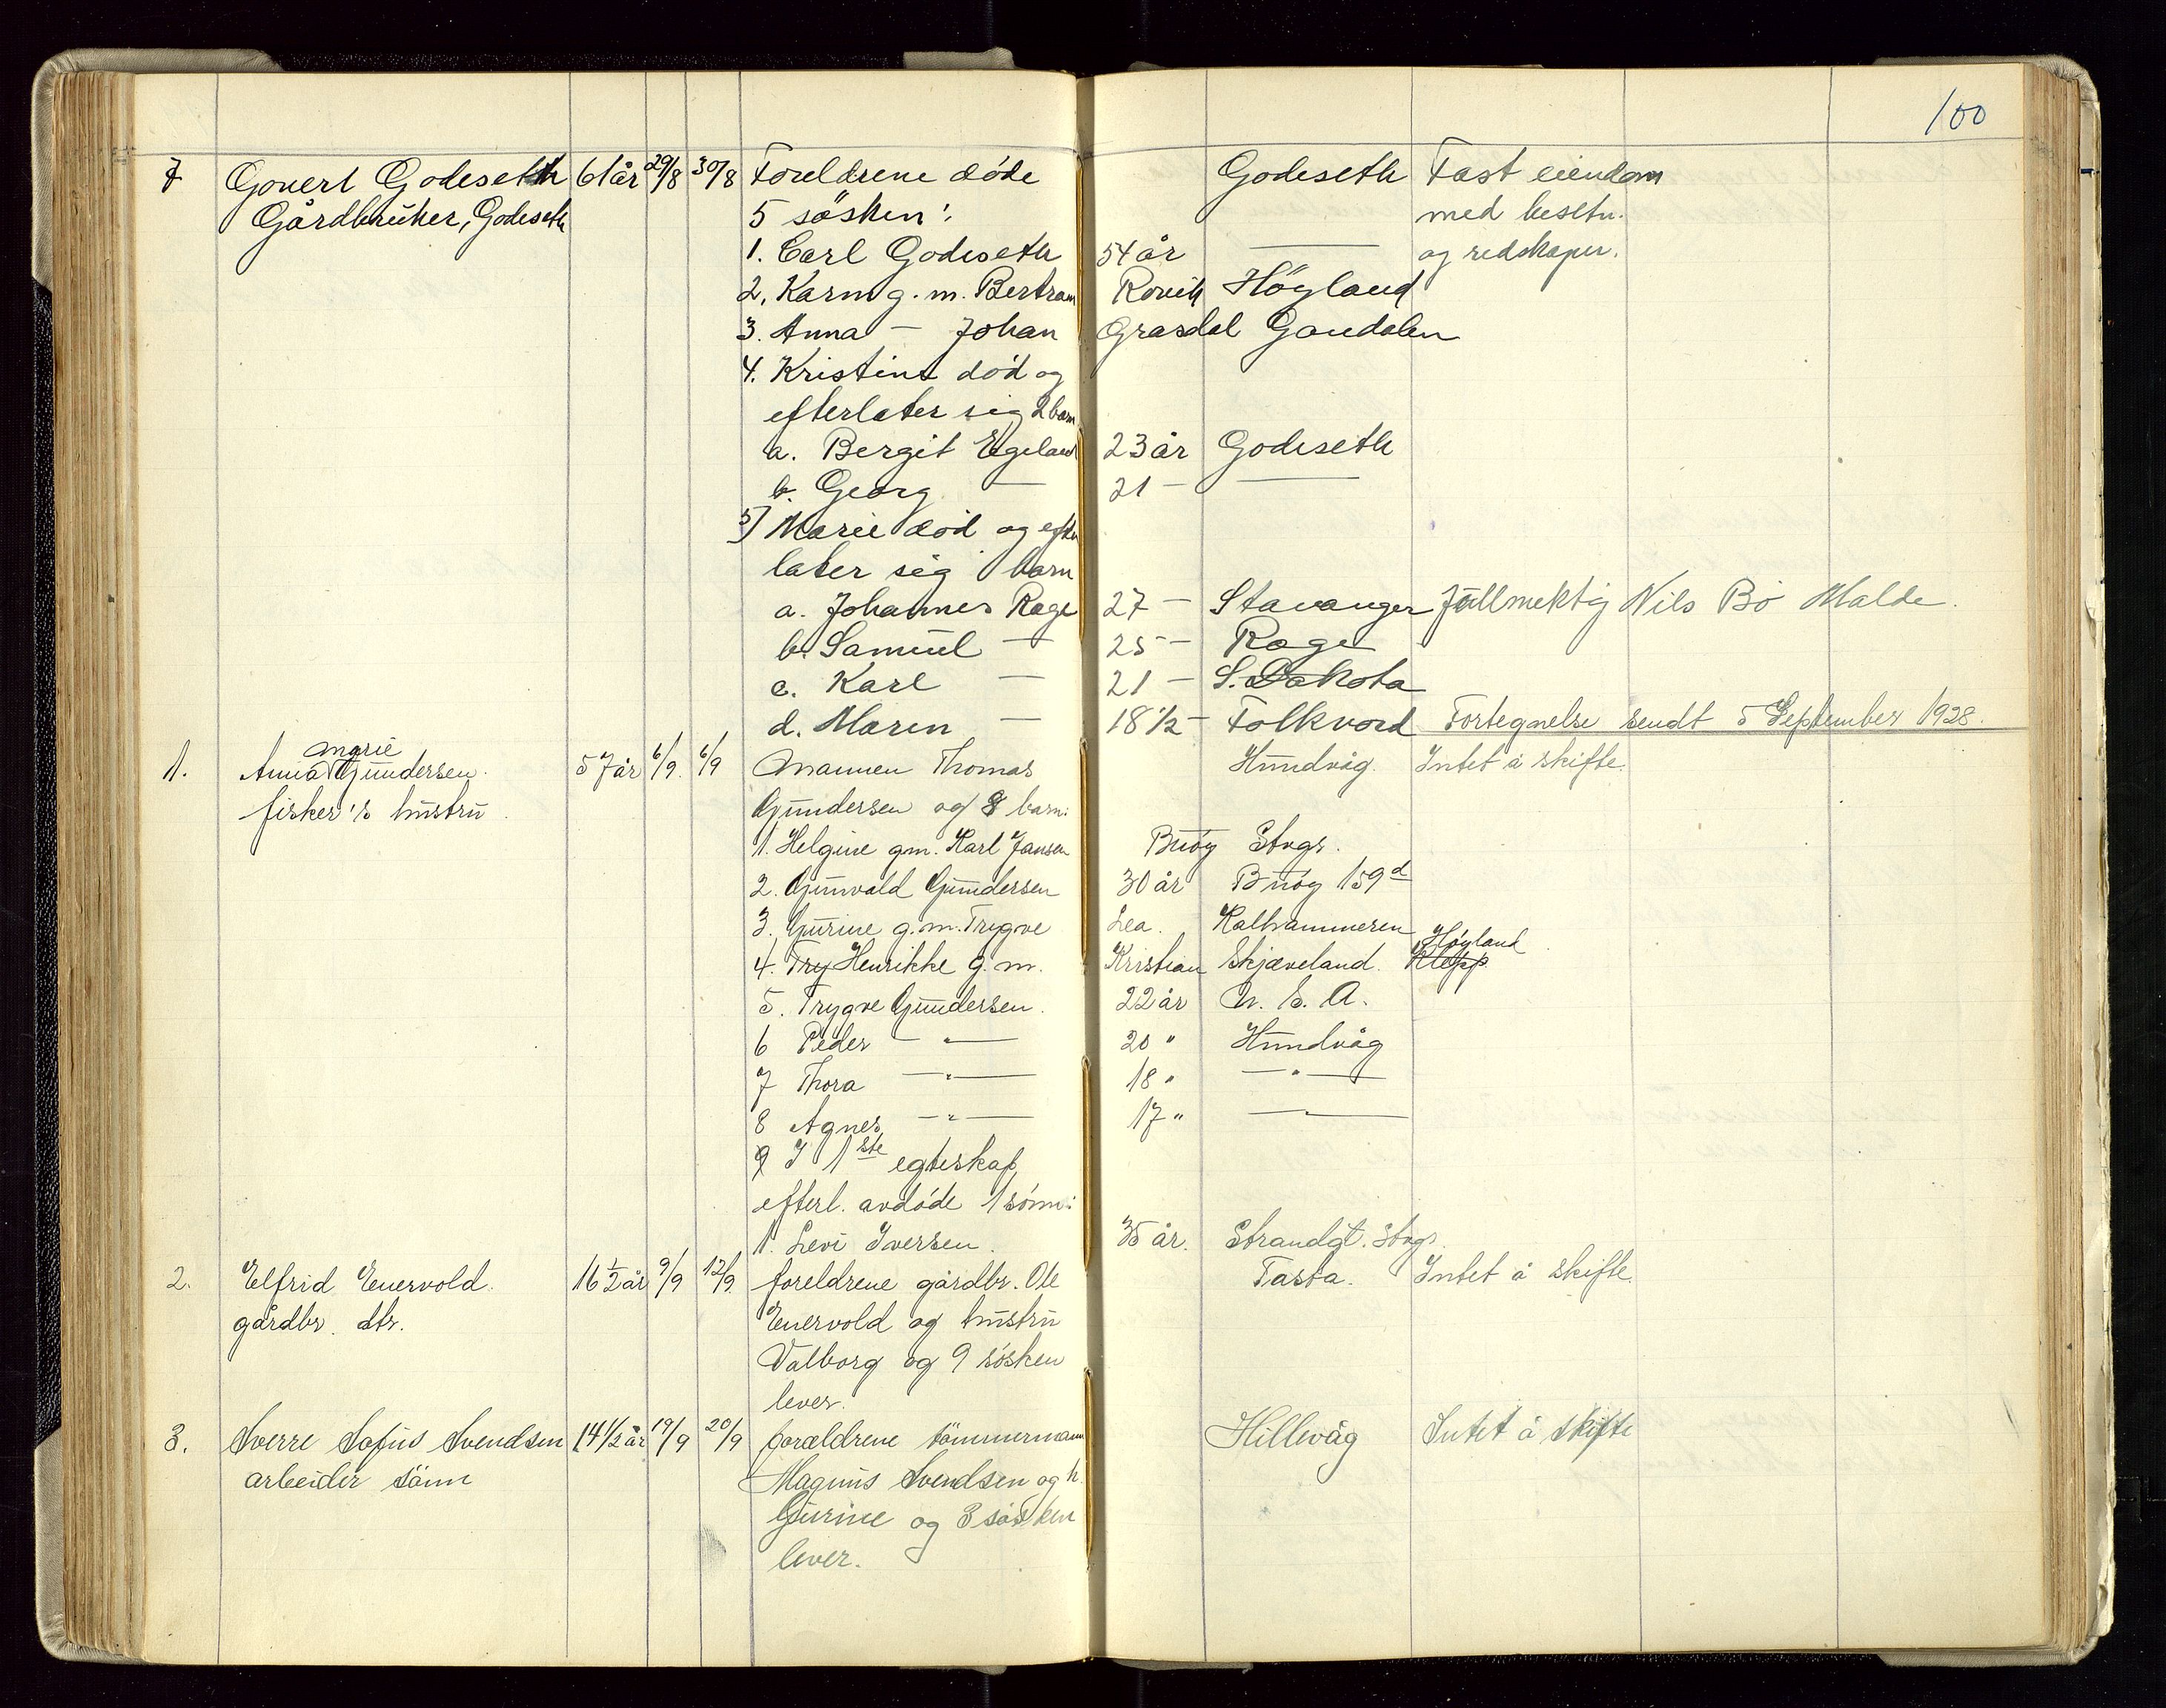 100
7 Govert Godeseth 61 år 29/8 30/8 Foreldrene døde Godeseth Fast eiendom
Gårdbruker, Godeseth 5 søsken: med besetn.
1. Carl Godeseth 54 år — og redskaper.
2. Karen g. m. Bertram Rovik Høyland
3. Anna — Johan Grasdal Gandalen
4. Kristine død og
efterlater sig 2 barn
a. Bergit Egeland 23 år Godeseth
b. Georg — 21 — —
5) Marie død og efter
later sig barn
a. Johannes Rage 27 — Stavanger Fullmektig Nils Bø Malde.
b. Samuel — 25 — Rage
c. Karl — 21 — S. Dakota
d. Maren — 18 1/2 — Folkvord Fortegnelse sendt 5 September 1928.
1. Anna Marie Gundersen. 57 år 6/9. 6/9 Mannen Thomas Hundvåg. Intet å skifte.
fisker's hustru. Gundersen og 8 barn:
1. Helgine gm. Karl Jansen Buøy Stvgr.
2. Gunvald Gundersen 30 år Buøy 159d
3. Gurine g.m. Trygve Lea. Kalhammeren
4. Try Henrikke g. m. Kristian Skjæveland. Klepp Høyland
5. Trygve Gundersen. 22 år U. S. A.
6 Peder — " — 20 " Hundvåg
7 Thora — " — 18 " — " —
8 Agnes — " — 17 " —
9 I 1ste egteskap
efterl. avdøde 1 sønn:
1. Levi Iversen. 35 år. Strandgt. Stvgr.
2. Elfrid Enervold. 16 1/2 år 9/9 12/9. foreldrene gårdbr. Ole Tasta. Intet å skifte.
gårdbr. dtr. Enervold og hustru
Valborg og 9 søsken
lever.
3. Sverre Sofus Svendsen 14 1/2 år 19/9 20/9 foreldrene tømmermann Hillevåg Intet å skifte
arbeider sønn Magnus Svendsen og h.
Gurine og 3 søsken
lever.